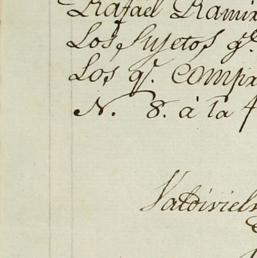 Rafael Ramir
Los Sujetos qe.
Los qe. compr
N. 8. á la 4
Valdiviels